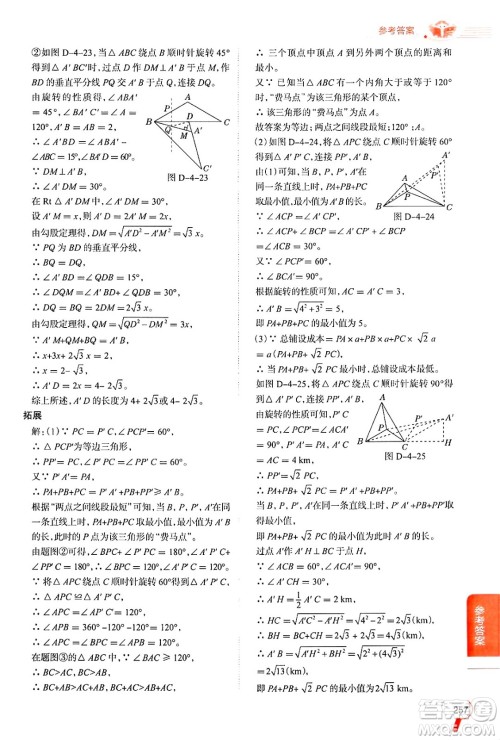 参考答案
②如图 D-4-23，当 △ ABC 绕点 B 顺时针旋转 45°
时，A′ D 与 PQ 交于点 M. 作 DM⊥A′ B 于点 M，
作 BD 的垂直平分线 PQ 交 A′ B 于点 Q.
由旋转的性质得，∠ ABA′
=45°，∠ BA′ C′ =∠ BAC=
120°，A′ B=AB=4.
∴ ∠ A′ BD=∠ ABA′ -∠ ABC
=15°，∠ DA′ B=60°.
∵ DM⊥A′ B，
∴ ∠ A′ DM=30°.
图 D-4-23
在 Rt △ A′ DM 中，∠ A′ DM=30°，
设 A′ M=x，则 A′ D=2x，
由勾股定理得，DM=√A′ D²-A′ M²=√3x.
∵ PQ 为 BD 的垂直平分线，
∴ BQ = DQ.
∴ ∠ A′ BD=∠ BDQ=15°.
∴ ∠ DQM =∠ A′ BD+∠ BDQ=30°.
∴ DQ=2DM=2√3x.
由勾股定理得，QM =√DQ²-DM²=3x.
∵ A′ M+QM+BQ=A′ B，
∴ x+3x+ 2√3x=4.
∴ x = 4-2√3.
综上所述，A′ D 的长度为 4+2√3或 4-2√3.
拓展
解：(1)∵ PC = P′ C，∠ PCP′ =60°，
∴ △ PCP′为等边三角形.
∴ PP′ =PC，∠ P′ PC =∠ PP′ C=60°.
又∵ P′ A′ =PA，
∴ PA+PB+PC= P′ A′ +PB+PP′ ⩾ A′ B.
根据“两点之间线段最短”可知，当 B，P，P′，A′
在同一条直线上时，PA+PB+PC 取最小值，最小值为
A′ B，此时的 P 点为该三角形的“费马点”.
由题图②可知，∠ BPC+ ∠ P′ PC =180°，∠ A′ P′ C+
∠ PP′ C=180°.
∴ ∠ BPC=120°，∠ A′ P′ C=120°.
∵ 将△ APC 绕点 C 顺时针旋转 60°得到 △ A′ P′ C，
∴ △ APC ≌ △ A′ P′ C.
∴ ∠ APC = ∠ A′ P′ C=120°.
∴ ∠ APB=360°-120°-120°=120°.
在题图③的 △ ABC 中，∠ BAC⩾120°，
∴ BC>AC，BC>AB.
∴ BC+AB>AC+AB，BC+AC>AB+AC.
∴ 三个顶点中顶点 A 到另外两个顶点的距离和
最小.
又∵ 已知中“费马点”为该三角形内到三个顶点的距离
之和最小的点，
∴ 该三角形的“费马点”为点 A.
故答案为等边；两点之间线段最短；120°；A.
(2)如图 D-4-24，将△ APC 绕点 C 顺时针旋转 60°得
到△ A′ P′ C，连接 PP′.
由(1)可知，当 B，P，P′，A′在
同一条直线上时，PA+PB+PC
取最小值，最小值为 A′ B.
∵ ∠ ACP=∠ A′ CP′，
图 D-4-24
∴ ∠ ACP+∠ BCP =∠ A′ CP′ +∠ BCP =∠ ACB=30°.
又∵ ∠ PCP′ =60°，
∴ ∠ BCA′ =∠ A′ CP′ +∠ BCP+∠ PCP′ =90°.
根据旋转的性质可知，AC=A′ C=4，
∴ A′ B=√4²+3²=5，
即 PA+PB+PC 的最小值为 5.
(3)∵ 总铺设成本= PA×a+PB×a+PC×√2a
=a(PA+PB+√2PC)，
∴ 当 PA+PB+ √2 PC 最小时，总铺设成本最低.
如图 D-4-25，将 △ APC 绕点 C 顺时针旋转 90°得
到△ A′ P′ C，连接 PP′，A′ B.
由旋转性质可知，P′ C=PC，
∠ PCP′ =∠ ACA′ =90°，
P′ A′ = PA，A′ C
= AC = 4 km，
图 D-4-25
∴ PP′ =√2 PC.
∴ PA+PB+ √2 PC = P′ A′ +PB+PP′.
当 B，P，P′，A′在同一条直线上时，P′ A′ +PB+PP′
取最小值，即 PA+PB+ √2 PC 取最小值为 A′ B.
过点A′作 A′ H⊥BC，垂足为 H，
∵ ∠ ACB = 60°，∠ ACA′ =90°，
∴ ∠ A′ CH=30°.
∴ A′ H=1/2 A′ C=2 (km).
∴ HC=√A′ C²-A′ H²=√4²-2²=2√3 (km).
∴ BH = BC+CH=2√3+2√3=4√3 (km).
∴ A′ B= √A′ H²+BH²=√2²+(4√3)²=
2√13 (km)，
即 PA+PB+ √2 PC 的最小值为 2√13 km.
参考答案
答案圈